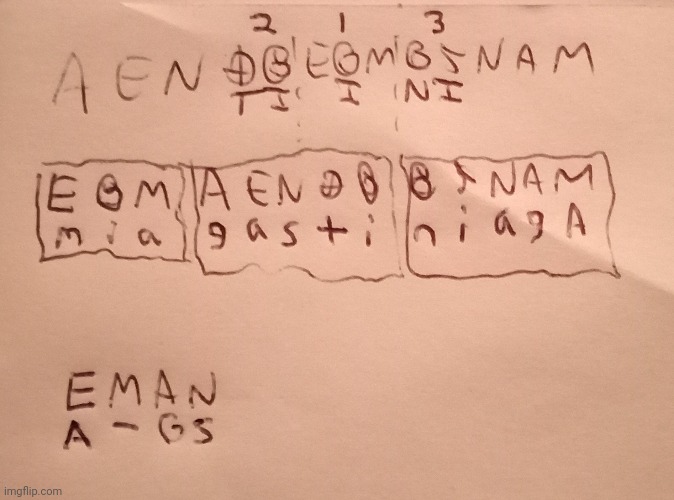 2 1 3
A E N ⊕ B E B M B S N A M
T I I N I
E B M A E N ⊕ B B S N A M
m i a g a s t i n i a g A
E M A N
A - G S
imgflip.com